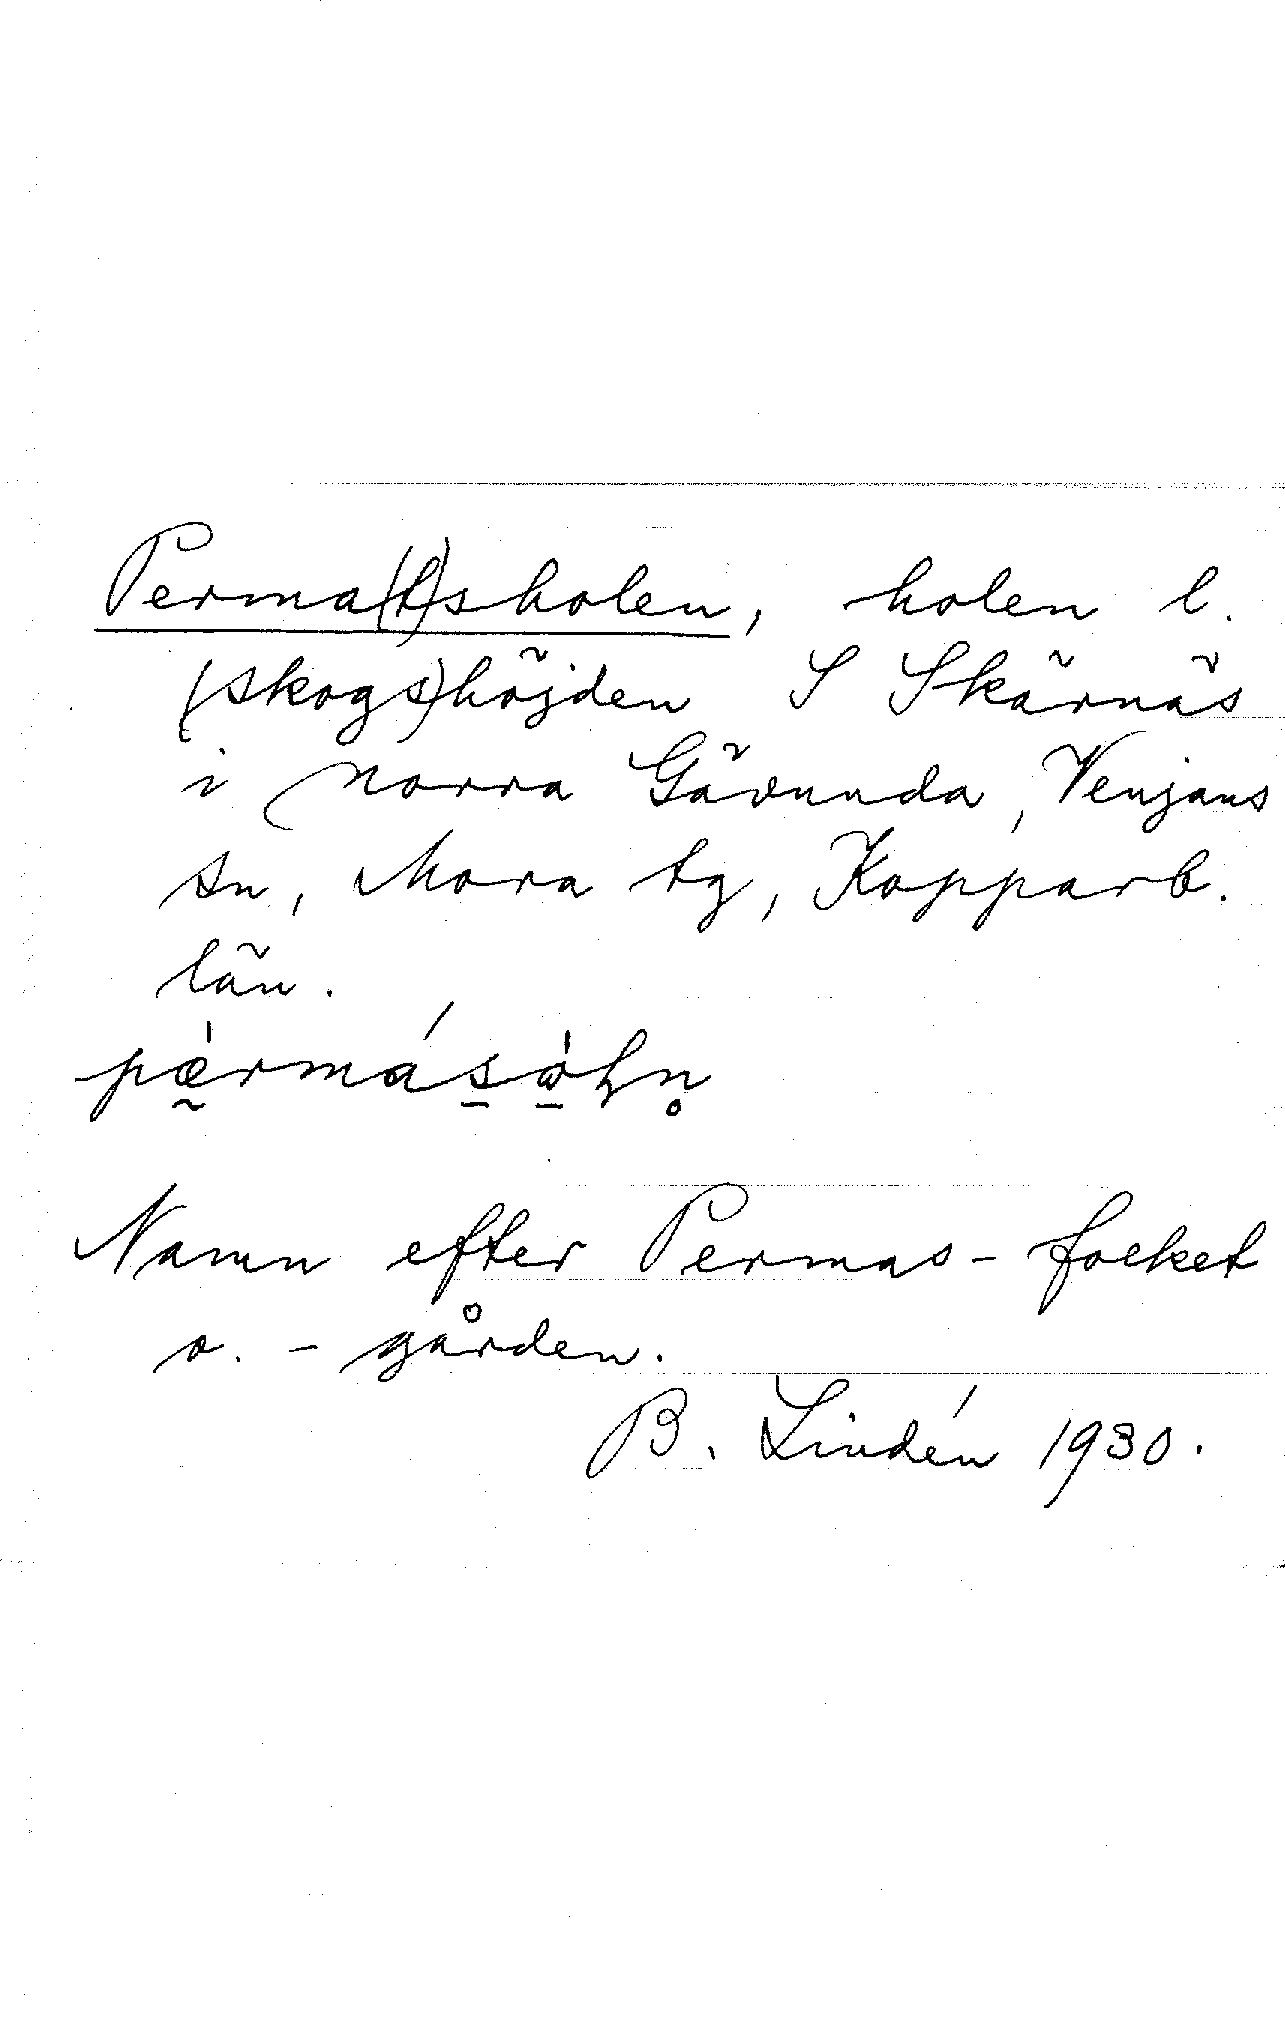 Perma(t)sholen, holen l.
(skogs)höjden S Skärnäs
i norra Gävunda, Venjans
sn, Mora tg, Kopparb.
län.
pærmásòłn̥
Namn efter Permas-folket
o. - gården.
B. Lindén 1930.